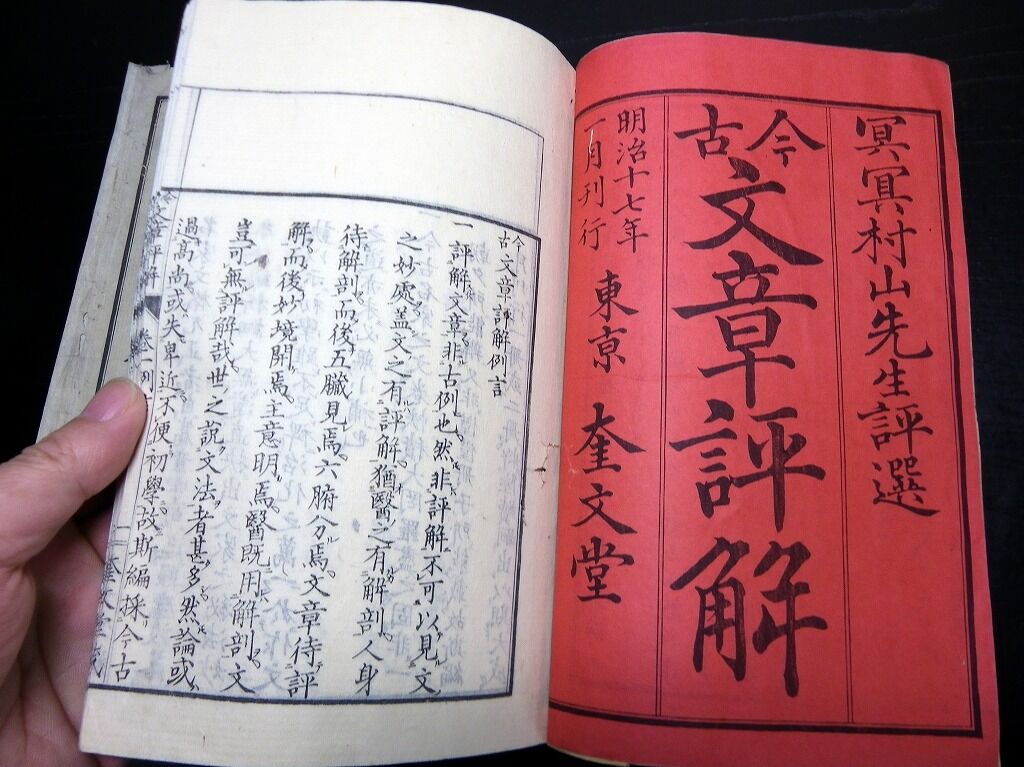 冥冥村山先生評選
今古文章評解
明治十七年
一月刊行
東京 奎文堂
今古文章評解例言
一評解文章非古例也然非評解不可以見文
之妙處蓋文之有評解猶醫之有解剖人身
待解剖而後五臓見焉六腑分焉文章待評
解而後妙境開焉主意明焉醫既用解剖文
豈可無評解哉世之說文法者甚多然論或
過高尚或失卑近不便初學故斯編採今古
文章評解 卷一 例